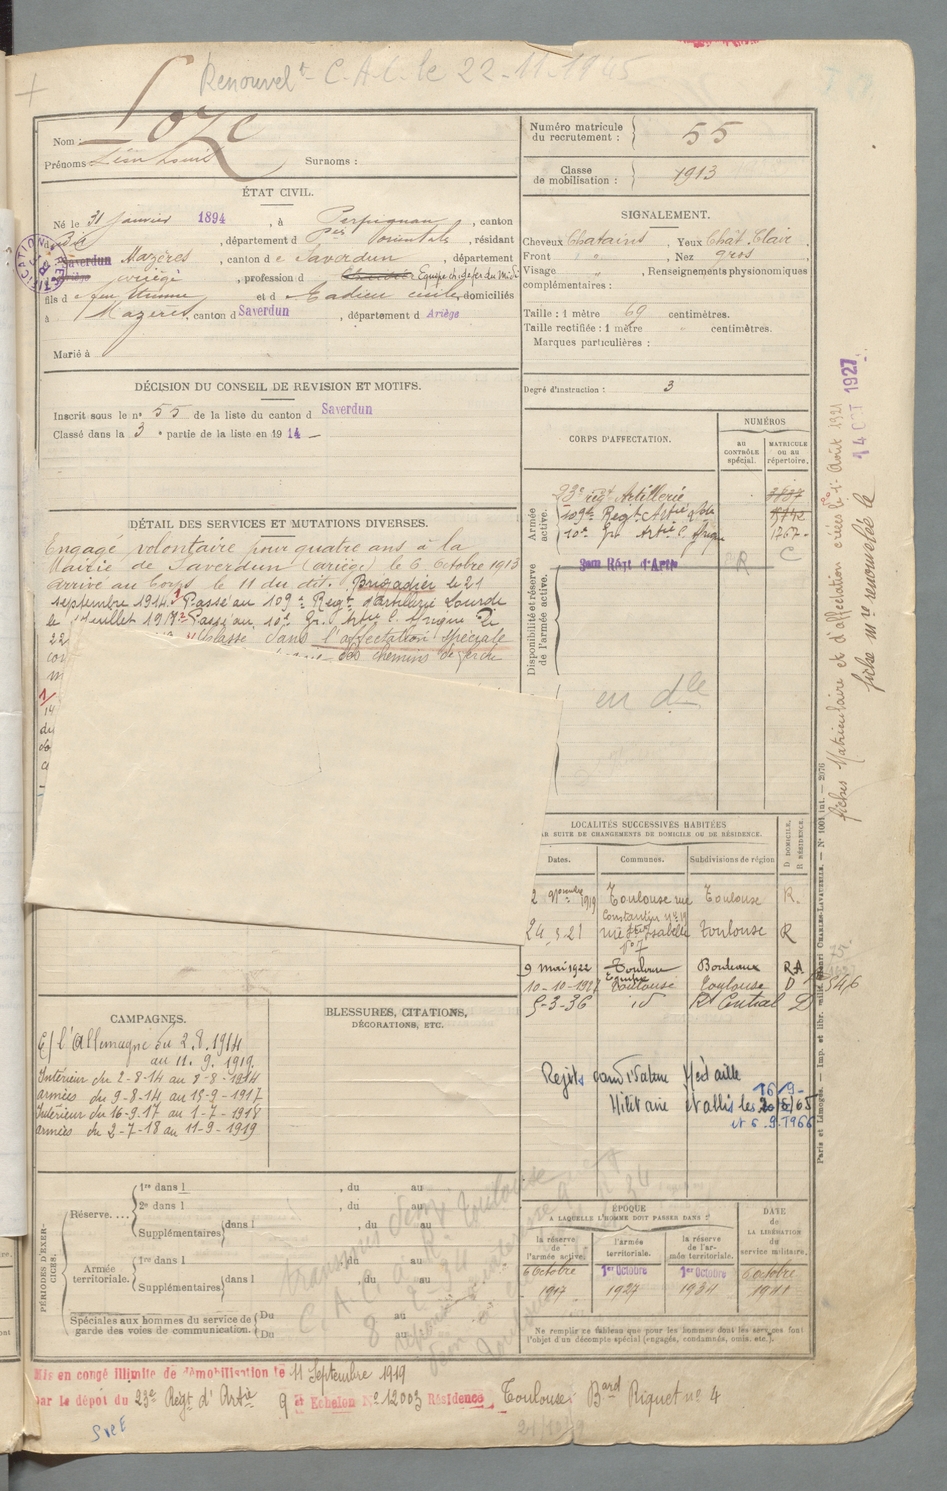 Renouvelt C.A.C. le 22-11-1945
Nom : Loze
Prénoms : Léon Louis Surnoms :
Numéro matricule du recrutement : 55
Classe de mobilisation : 1913
ÉTAT CIVIL.
Né le 31 Janvier 1894, à Perpignan, canton
dit, département d Pées Orientales, résidant
Saverdun Mazères, canton de Saverdun, département
Ariège, profession d Equipe ch. de fer du Midi
fils de feu Etienne et d Cadieu Cécile, domiciliés
à Mazères, canton d Saverdun, département d Ariège
Marié à
SIGNALEMENT.
Cheveux Chatains, Yeux Chât. Clair
Front, Nez gros
Visage " , Renseignements physionomiques
complémentaires :
Taille : 1 mètre 69 centimètres.
Taille rectifiée : 1 mètre " centimètres.
Marques particulières :
Degré d'instruction : 3
DÉCISION DU CONSEIL DE REVISION ET MOTIFS.
Inscrit sous le n° 55 de la liste du canton d Saverdun
Classé dans la 3e partie de la liste en 1914
DÉTAIL DES SERVICES ET MUTATIONS DIVERSES.
Engagé volontaire pour quatre ans à la
Mairie de Saverdun (Ariège) le 6 Octobre 1913
arrivé au Corps le 11 du dit. Brigadier le 21
septembre 1914. Passé au 109e Regt d'artillerie Lourde
le juillet 1917 Passé au 10e Gr. Artie C. Afrique le
22
Classé dans l'affectation spéciale
des chemins de fer du
CORPS D'AFFECTATION.
NUMÉROS
AU CONTRÔLE spécial.
MATRICULE OU AU répertoire.
Armée active.
23e régt Artillerie
109e Regt Artie Lde
10e Gr. Artie C. Afrique 1767
Disponibilité et réserve de l'armée active.
3me Régt d'Artie
R C
en dle
LOCALITÉS SUCCESSIVES HABITÉES
PAR SUITE DE CHANGEMENTS DE DOMICILE OU DE RÉSIDENCE.
Dates. Communes. Subdivisions de région D. DOMICILE. R. RÉSIDENCE.
2 9bre 1919 Toulouse rue Constantine n° 19 Toulouse R.
24.5.21 rue Isabelle n° 7 Toulouse R
9 mai 1922 Toulouse Bordeaux RA
10-10-1927 Toulouse Toulouse D
5-3-36 id Rt Central D
546
Rejets candidature Médaille
Militaire établis les
16/9-65
et 6.9.1966
CAMPAGNES.
C/ l'Allemagne du 2.8.1914
au 11.9.1919.
Intérieur du 2-8-14 au 8-8-1914
armées du 9-8-14 au 15-9-1917
Intérieur du 16-9-17 au 1-7-1918
armées du 2-7-18 au 11-9-1919
BLESSURES, CITATIONS,
DÉCORATIONS, ETC.
PÉRIODES D'EXERCICES.
Réserve....
1re dans l , du au
2e dans l , du au
Supplémentaires dans l , du au
Armée territoriale.
1re dans l , du au
Supplémentaires dans l , du au
Spéciales aux hommes du service de garde des voies de communication.
Du au
Du au
ÉPOQUE
A LAQUELLE L'HOMME DOIT PASSER DANS :
la réserve de l'armée active.
l'armée territoriale.
la réserve de l'armée territoriale.
DATE DE LA LIBÉRATION du service militaire.
6 Octobre 1917
1er Octobre 1927
1er Octobre 1934
6 octobre 1941
Ne remplir ce tableau que pour les hommes dont les services font
l'objet d'un décompte spécial (engagés, condamnés, omis, etc.).
Mis en congé illimité de démobilisation le 11 Septembre 1919
par le dépôt du 23e Régt d'Artie 9e Echelon N° 12003 Résidence Toulouse Bard Riquet n° 4
fiches Matriculaire et d'affectation créées le 1er Août 1921
fiche mre renouvelée le 14 OCT 1927
Paris et Limoges. — Imp. et libr. milit. Henri CHARLES-LAVAUZELLE. — N° 1001 int. — 2076